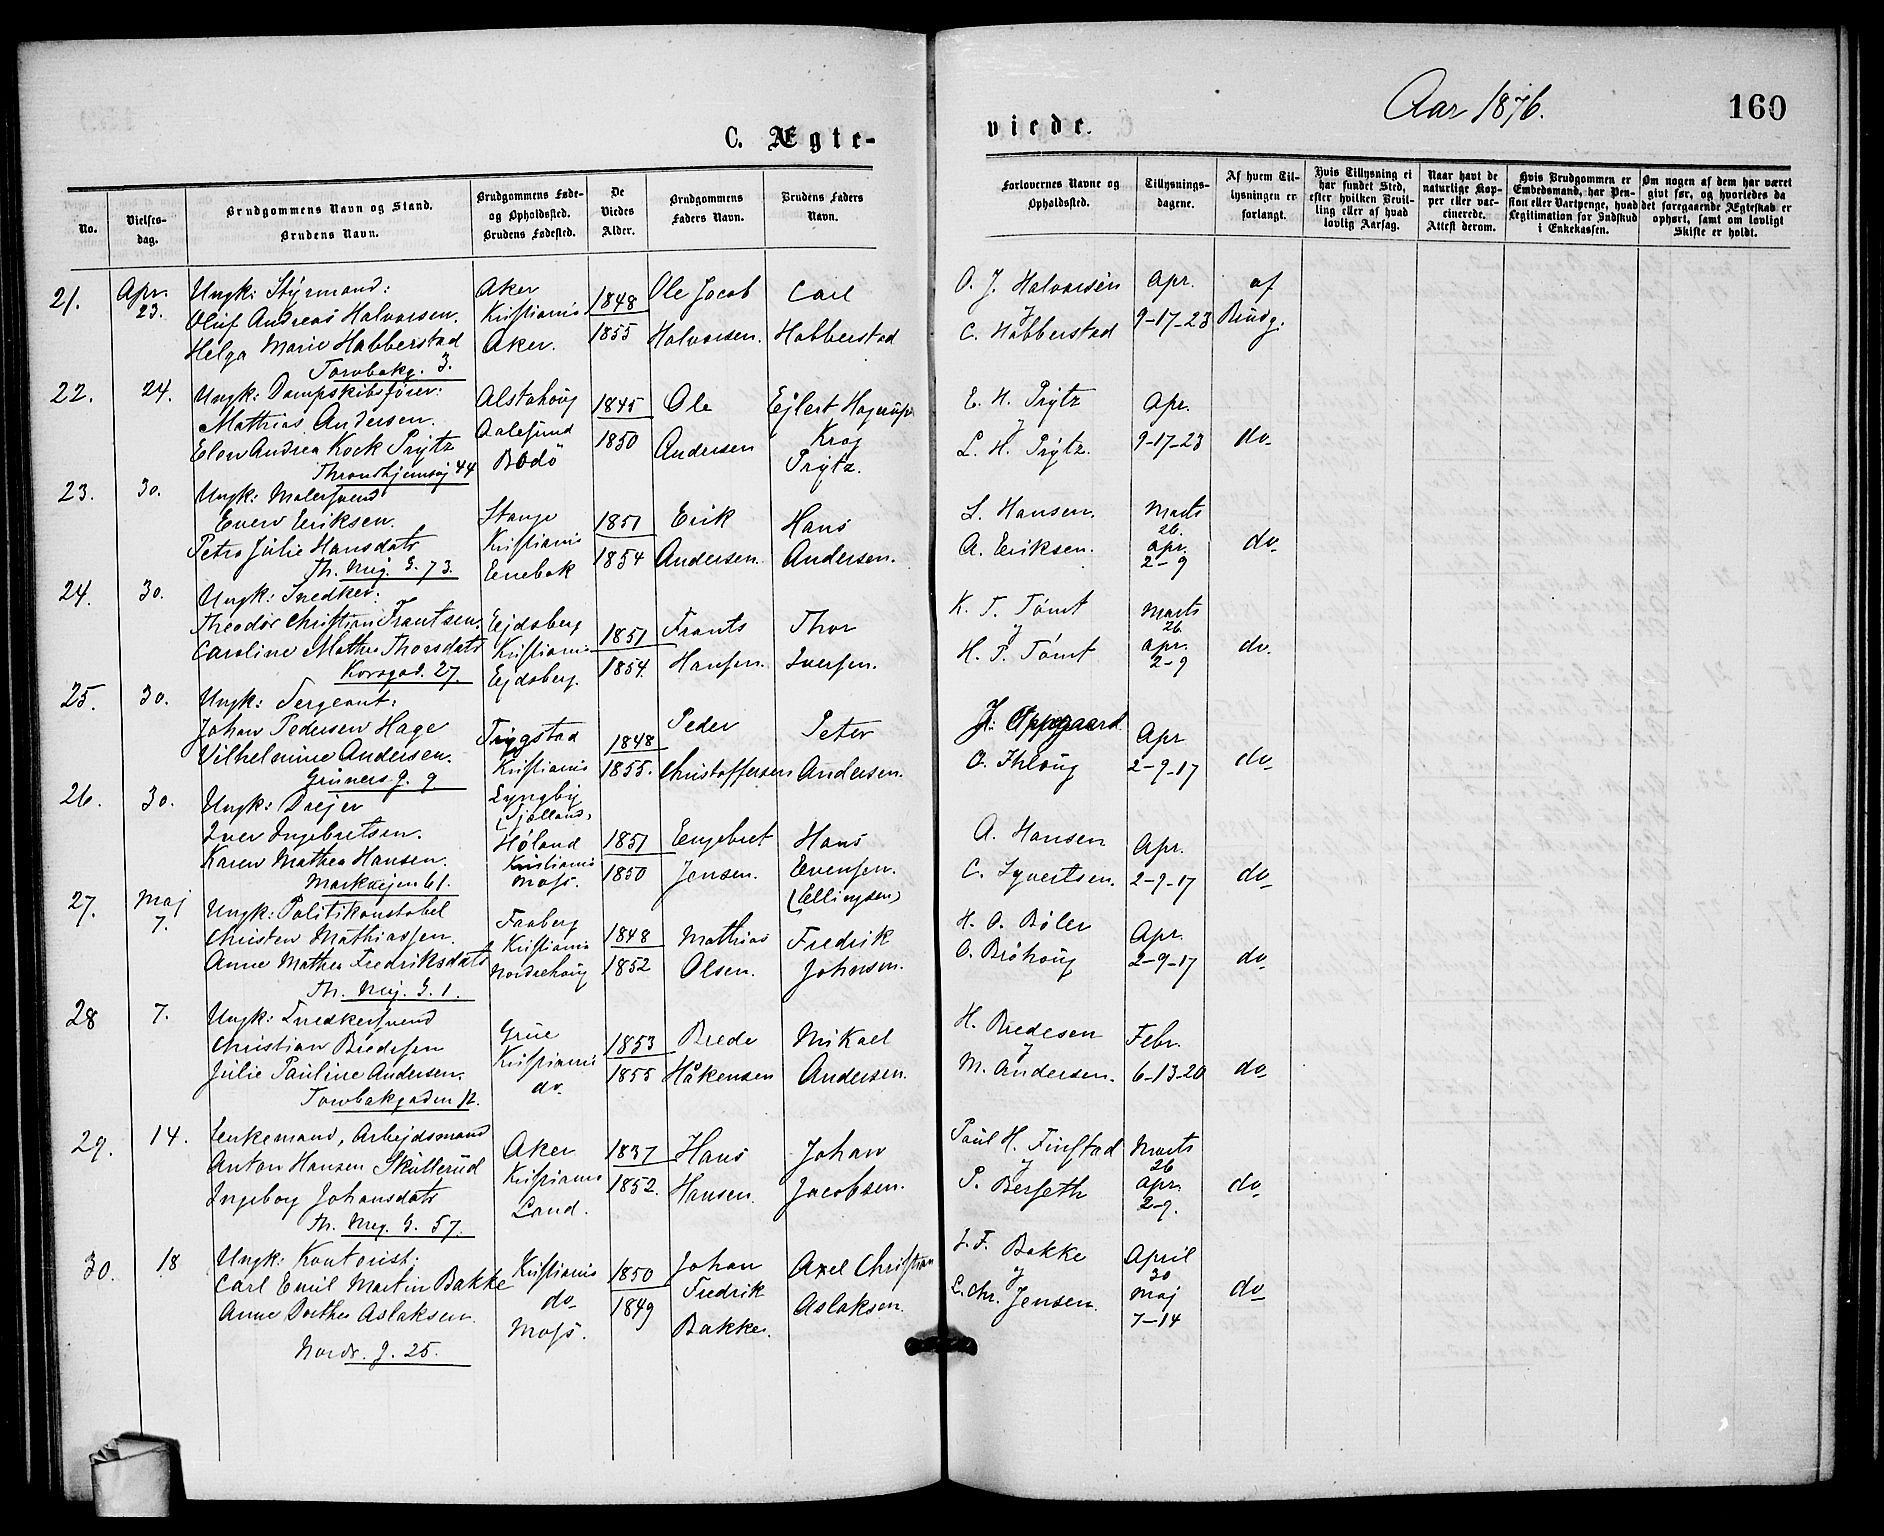 Aar 1876.
160
C. Ægte-
viede.
No.
Vielses-
dag.
Brudgommens Navn og Stand.
Brudens Navn.
Brudgommens Føde-
og Opholdssted.
Brudens Fødested.
De
Viedes
Alder.
Brudgommens
Faders Navn.
Brudens Faders
Navn.
Forlovernes Navne og
Opholdssted.
Tillysnings-
dagene.
Af hvem Til-
lysningen er
forlangt.
Hvis Tillysning ei
har fundet Sted,
efter hvilken Bevil-
ling eller af hvad
lovlig Aarsag.
Naar havt de
naturlige Kop-
per eller vac-
cinerede.
Attest derom.
Hvis Brudgommen er
Embedsmand, har Pen-
sion eller Vartpenge, hvad
Legitimation for Indskud
i Enkekassen.
Om nogen af dem har været
gift før, og hvorledes da
det foregaaende Ægteskab er
ophørt, samt om lovligt
Skifte er holdt.
21. Apr. 23.
Ungk: Styrmand:
Oluf Andreas Halvorsen.
Helga Marie Habberstad
Torvbakg. 3.
Aker
Kristiania
Aker.
1848
1855
Ole Jacob
Halvorsen.
Carl
Habberstad
O. J. Halvorsen
C. Habberstad
Apr.
9-17-23
af
Brudg.
22. 24.
Ungk: Dampskibsfører:
Mathias Andersen.
Elen Andrea Kock Prytz
Throndhjemsvj 44
Alstahoug
Aalesund
Bodö
1845
1850
Ole
Andersen
Ejlert Hagerup
Krog
Prytz.
E. H. Prytz
L. H. Prytz.
Apr.
9-17-23
do
23. 30.
Ungk: Malersvend
Even Eriksen.
Petra Julie Hansdatr
Th. Mej. G. 73.
Stange
Kristiania
Enebak
1851
1854
Erik
Andersen.
Hans
Andersen.
L. Hansen.
A. Eriksen.
Marts
26.
apr.
2-9
do
24. 30.
Ungk: Snedker:
Theodor Christian Frantsen.
Caroline Mathea Thorsdatr
Korsgad. 27.
Ejdsberg
Kristiania
Ejdsberg.
1851
1854.
Frants
Hansen.
Thor
Iversen.
K. T. Tömt
H. T. Tömt
Marts
26.
apr.
2-9
do.
25. 30.
Ungk: Sergeant:
Johan Pedersen Hage
Vilhelmine Andersen.
Gruners g. 9.
Trygstad
Kristiania
Lyngby
(Sjælland)
1848
1855.
Peder
Christoffersen
Peter
Andersen.
J. Oppegaard
O. Ihloug
Apr
2-9-17
do
26. 30.
Ungk: Drejer
Iver Ingebretsen.
Karen Mathea Hansen.
Markvejen 61.
Høland
Kristiania
Moss.
1851
1850
Engebret
Jensen.
Hans
Evensen.
(Ellingsen)
A. Hansen
C. Syvertsen.
Apr.
2-9-17
do
27. Maj 7.
Ungk: Politikonstabel
Christen Mathiassen.
Anne Mathea Fredriksdatr
Th. Mej. G. 1.
Faaberg
Kristiania
Norderhoug
1848
1852
Mathias
Olsen.
Fredrik
Johnsen.
H. O. Böler
O. Bröhoug
Apr.
2-9-17
do
28 7.
Ungk: Snedkersvend
Christian Bredesen
Julie Pauline Andersen.
Torvbakgaden 12.
Grue
Kristiania
do
1853
1855
Brede
Håkensen
Mikael
Andersen.
H. Bredesen
M. Andersen.
Febr.
6-13-20
do
29. 14.
Enkemand, Arbejdsmand
Anton Hansen Skullerud
Ingeborg Johansdatr
Th. Mej. G. 57.
Aker
Kristiania
Land.
1837
1852.
Hans
Hansen.
Johan
Jacobsen.
Paul H. Finstad
P. Berseth
Marts
26
apr.
2-9.
do
30. 18
Ungk: Kontorist:
Carl Emil Martin Bakke
Anne Dorthea Aslaksen.
Nordr. g. 25.
Kristiania
do
Moss.
1850
1849
Johan
Fredrik
Bakke.
Axel Christian
Aslaksen.
J. F. Bakke
L. Chr. Jensen.
April
30
Maj
7-14
do